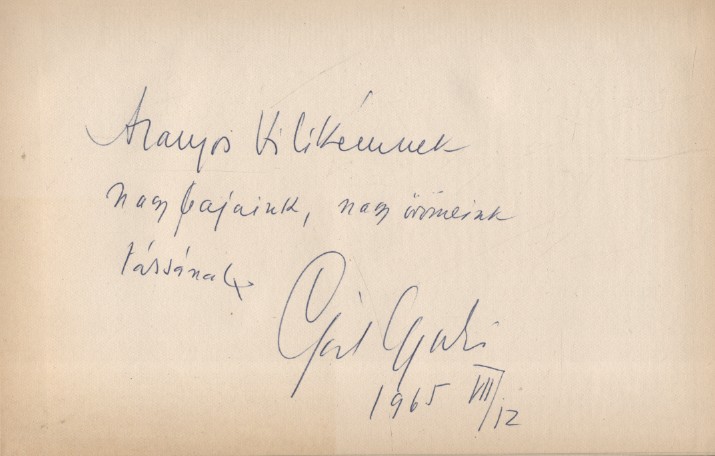 Aranyos Kilikémnek
nagy bajaink, nagy örömeink
társának
1965 VII/12